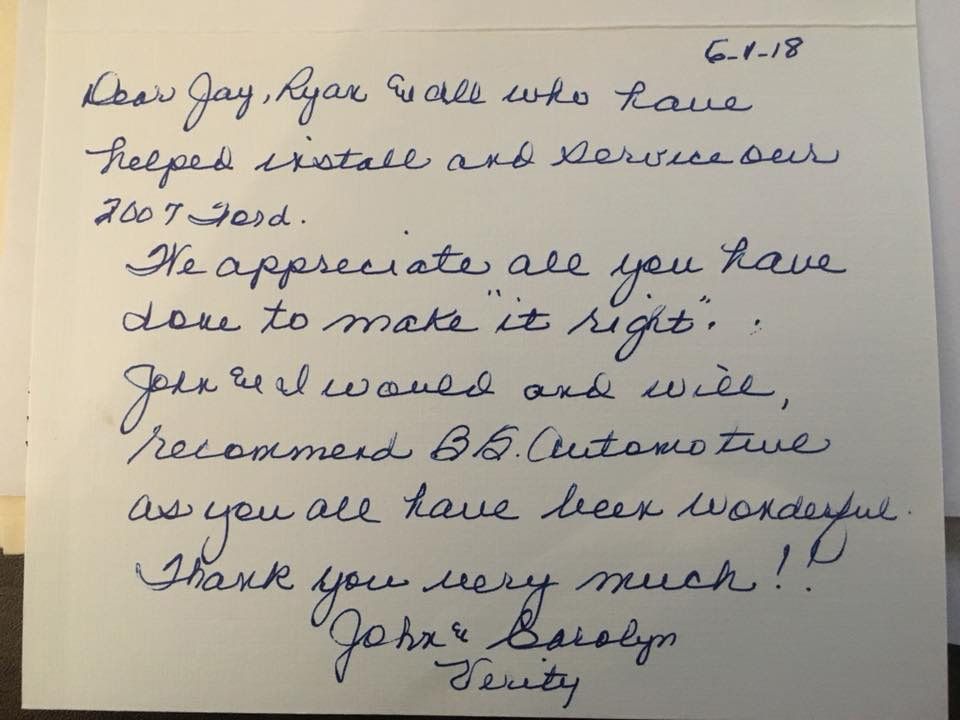 6-1-18
Dear Jay, Ryan & all who have
helped install and service our
2007 Ford.
We appreciate all you have
done to make "it right".
John & I would and will,
recommend BG. Automotive
as you all have been wonderful.
Thank you very much!!
John & Carolyn
Verity